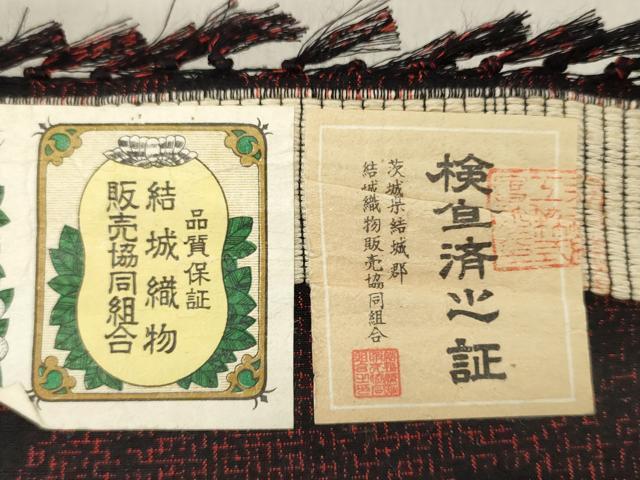 品質保証
結城織物
販売協同組合
検査済之証
茨城県結城郡
結城織物販売協同組合